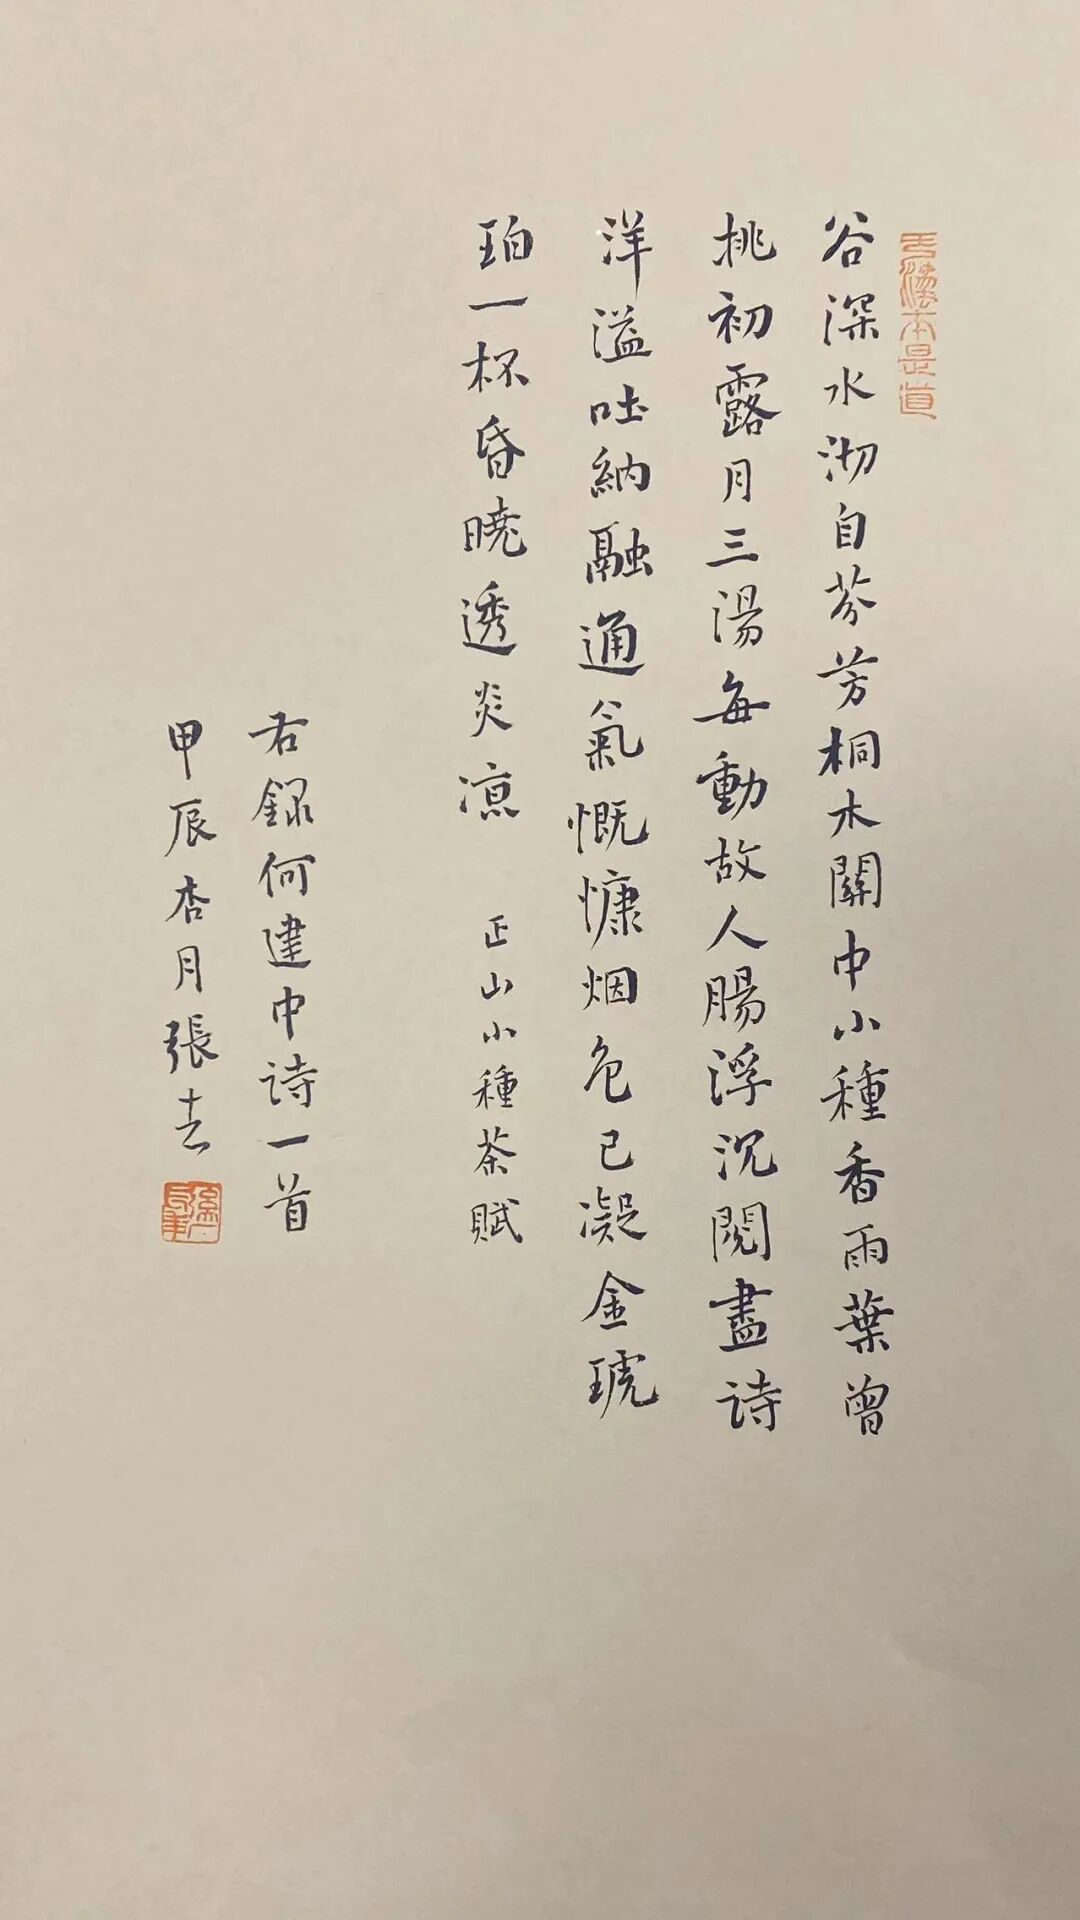 谷深水沏自芬芳桐木關中小種香雨葉曾
挑初露月三湯每動故人腸浮沉閱盡詩
洋溢吐納融通氣慨慷烟色已凝金琥
珀一杯昏曉透炎涼
正山小種茶賦
右録何建中诗一首
甲辰杏月張
本是道